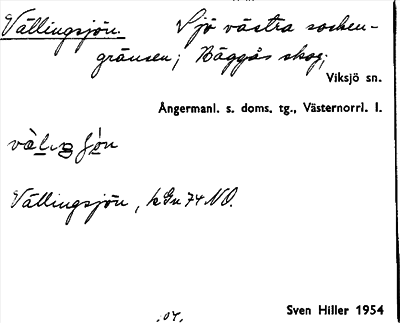 Vällingsjön. Sjö västra socken-
gränsen; Bäggås skog;
Viksjö sn.
Ångermanl. s. doms. tg., Västernorrl. l.
Vällingsjön, kGn 74 NO.
Sven Hiller 1954